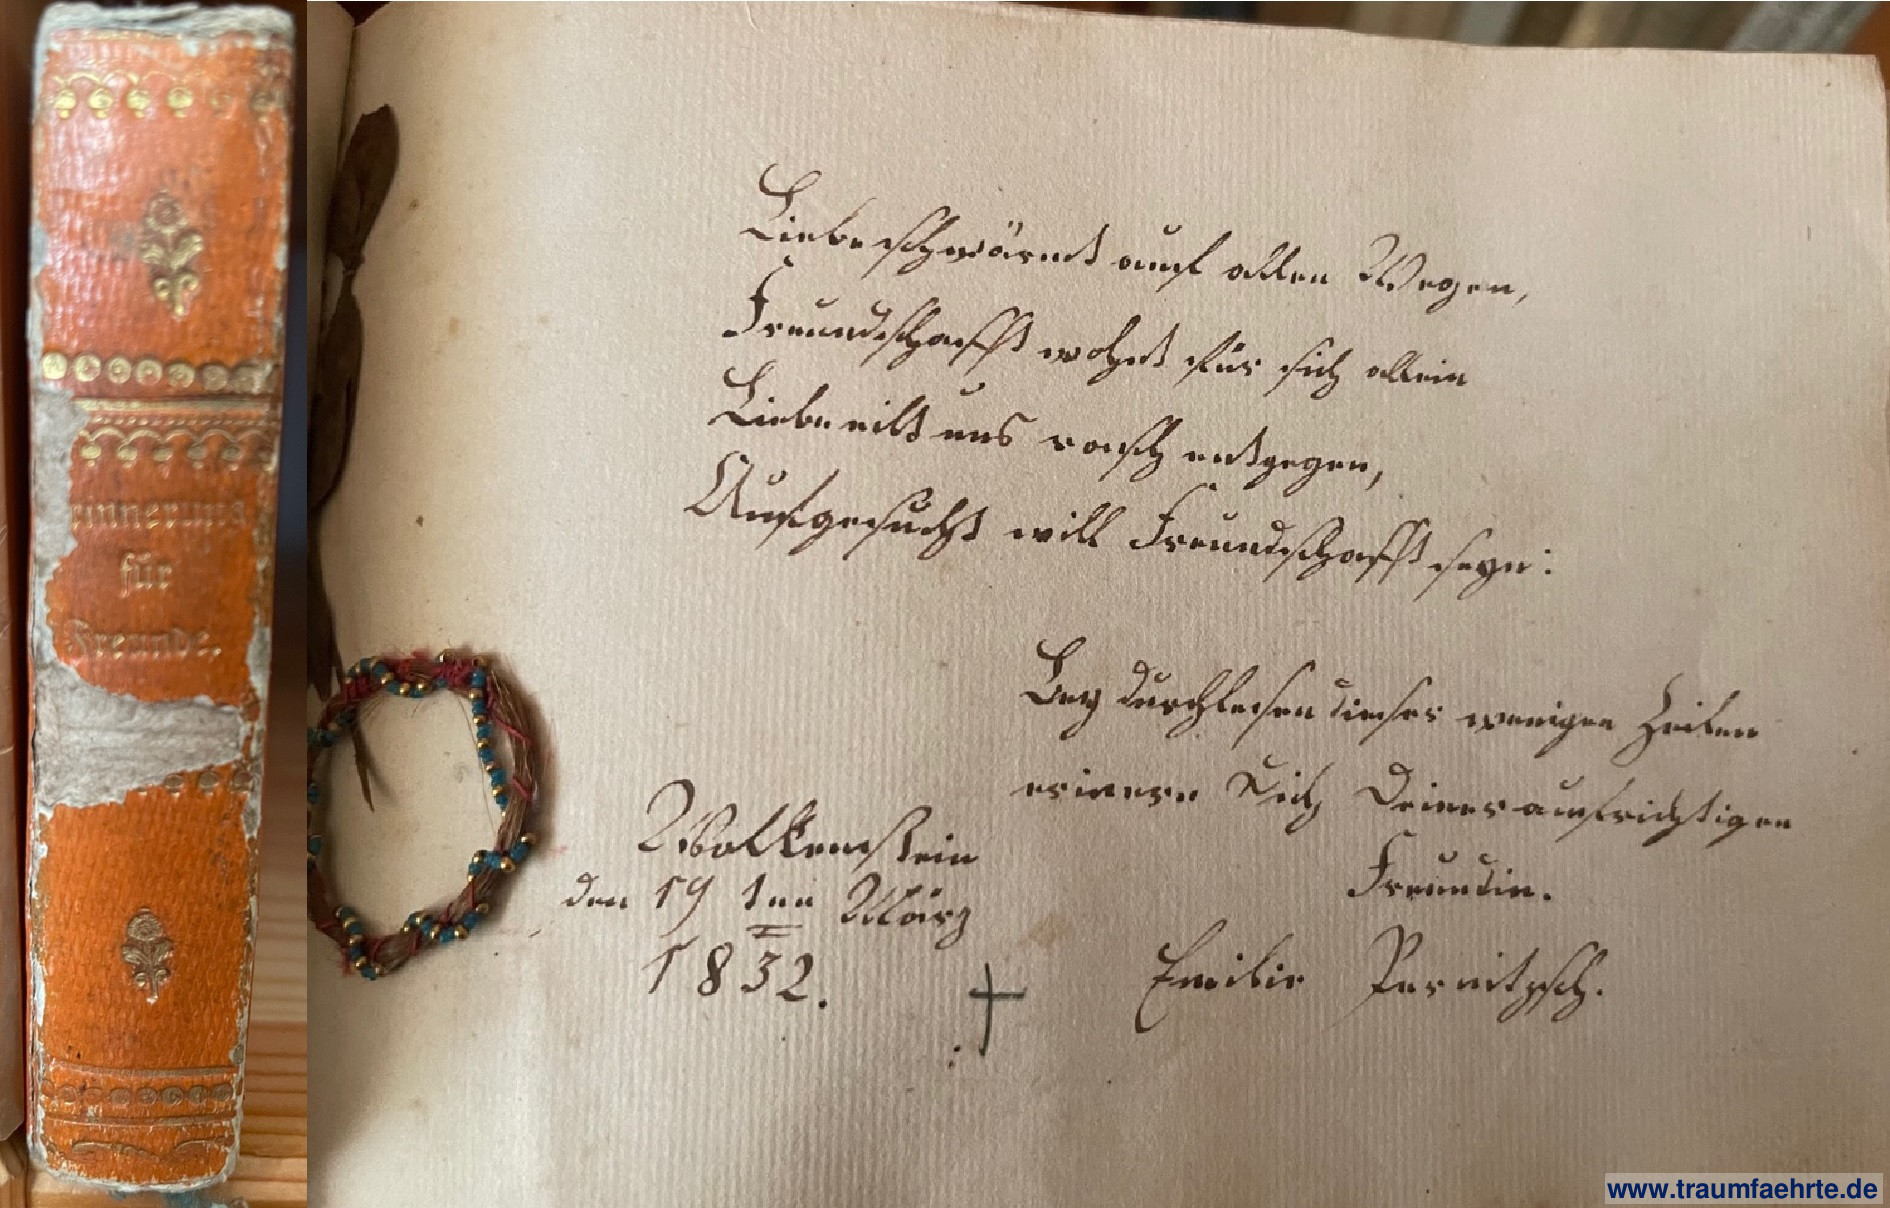 rinnerung
für
Freunde.
Liebe schwärmt auf allen Wegen,
Freundschafft wohnt für sich allein
Liebe eilt uns rasch entgegen,
Aufgesucht will Freundschafft seyn:
Bey durchlesen dieser wenigen Zeilen
erinere Dich Deiner aufrichtigen
Freundin.
Emilie Pernitzsch.
Wolkenstein
den 19 ten März
1832.
www.traumfaehrte.de